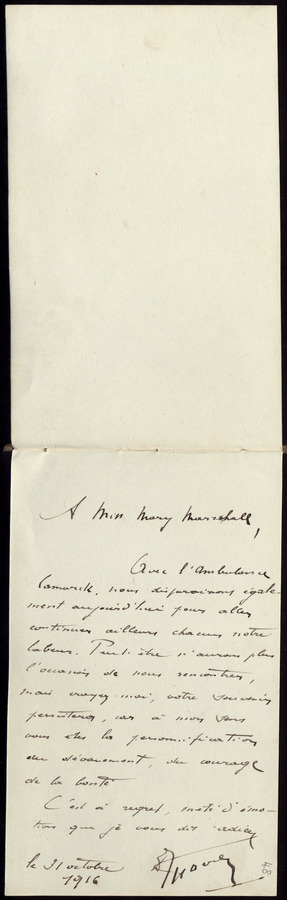 A Miss Mary Marschall,
Avec l'Ambulance
Lamarck, nous disparaissons égale-
ment aujourd'hui pour aller
continuer ailleurs chacun notre
labeur. Peut-être n'aurons plus
l'occasion de nous rencontrer,
mais croyez moi, votre souvenir
persistera, car à mon sens
vous êtes la personnification
du dévouement, du courage
de la bonté
C'est à regret, mêlé d'émo-
tion que je vous dit adieu
le 31 octobre
1916
48